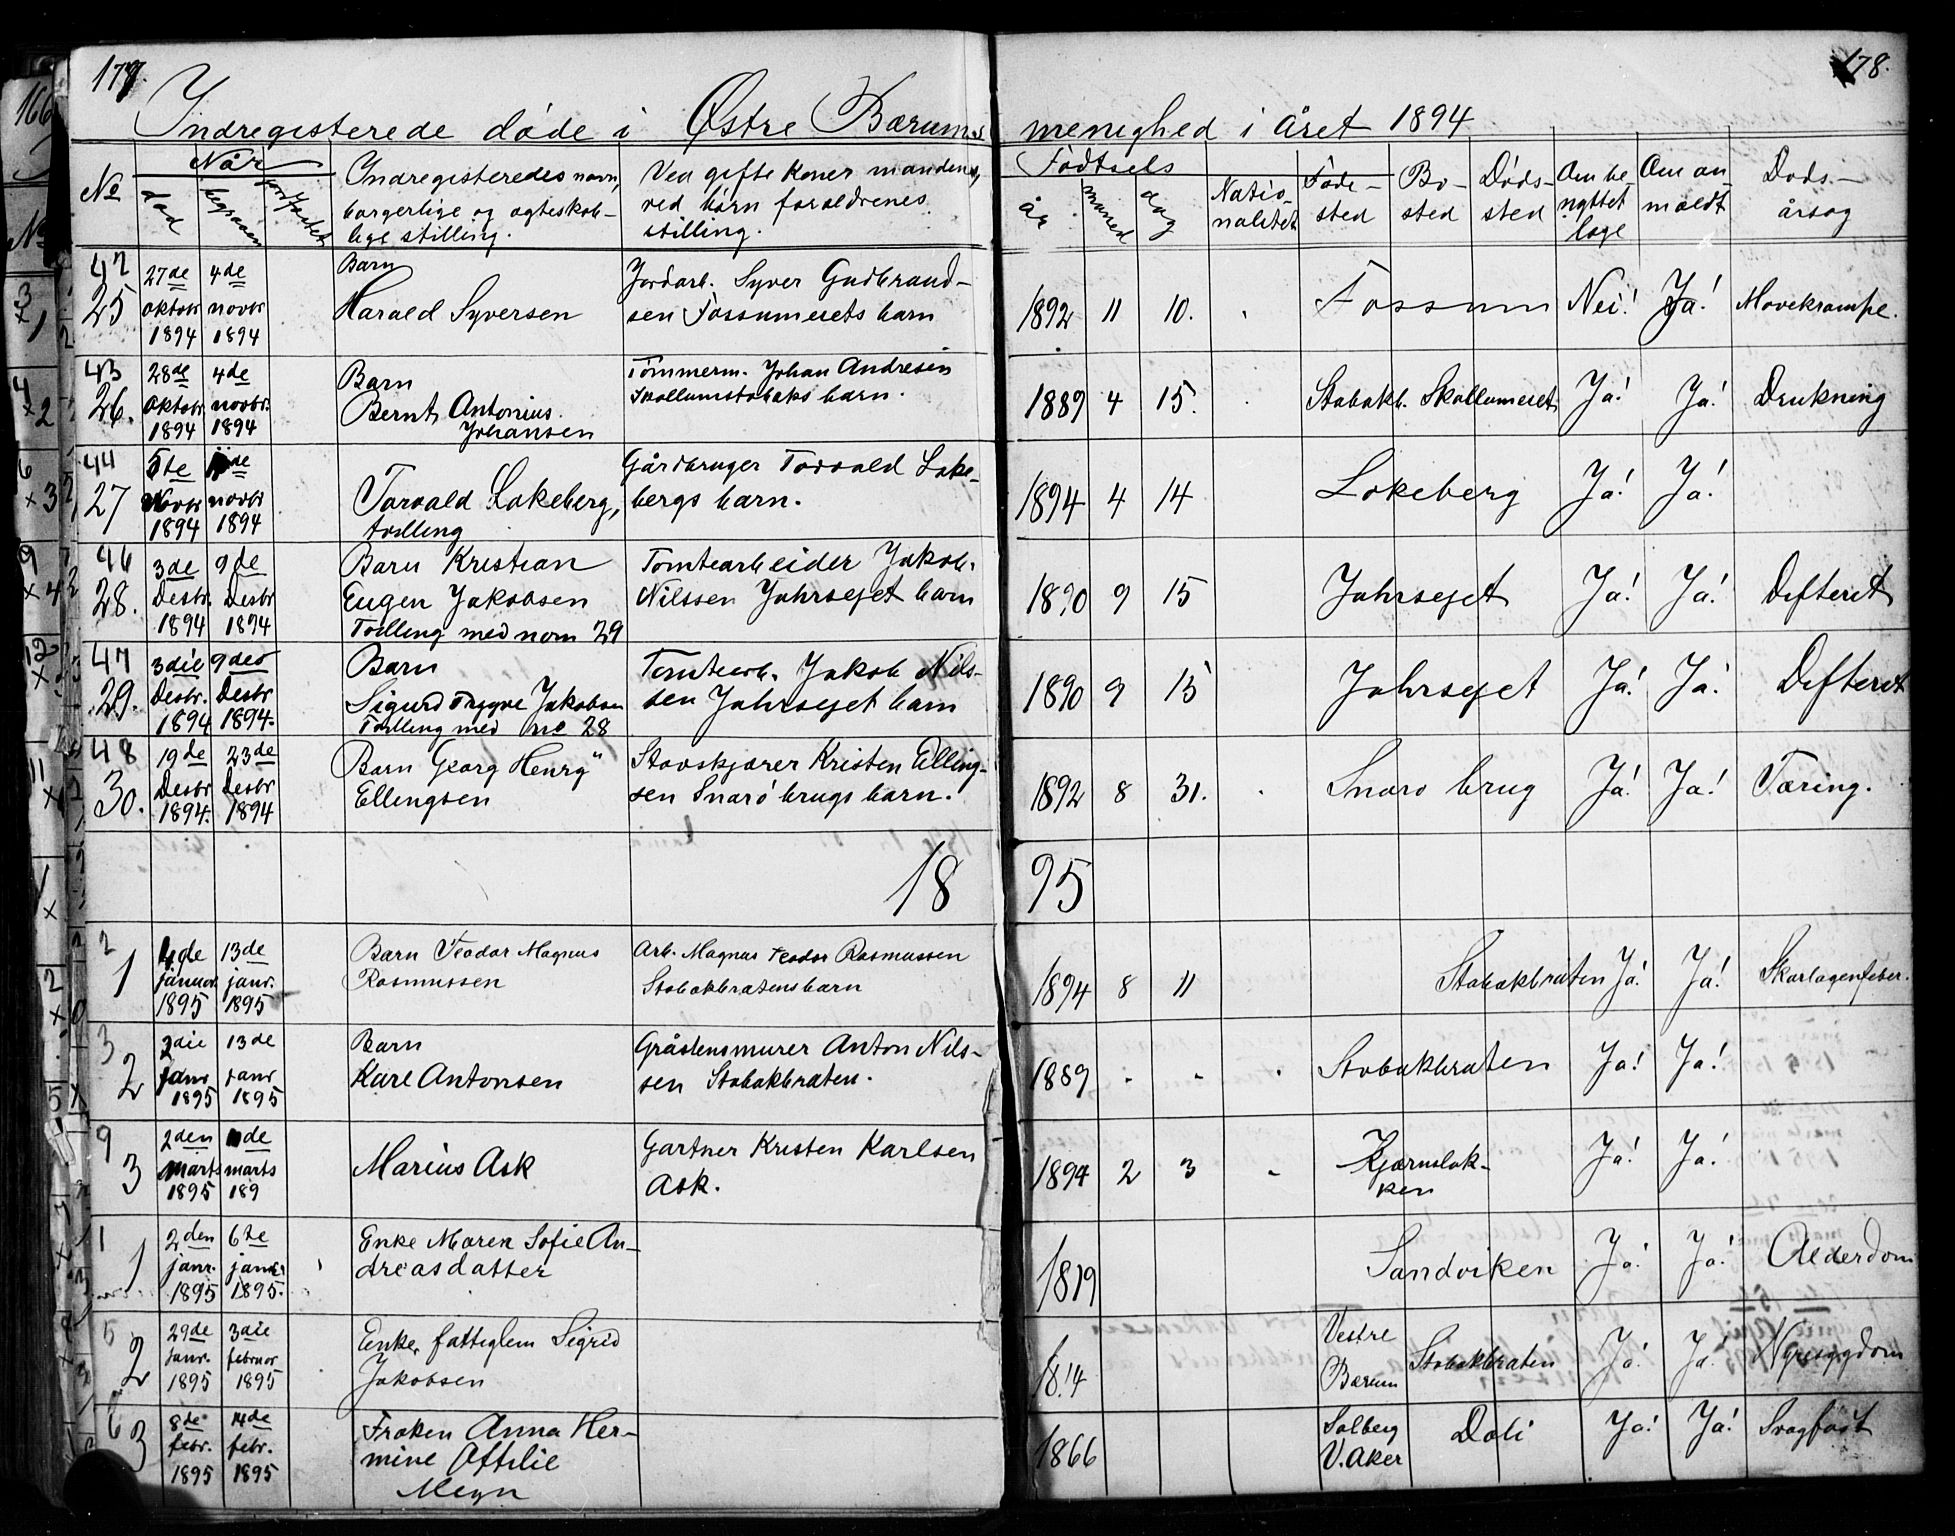 177.
178.
Indregisterede døde i Østre Bærums menighed i året 1894
No
Når
død
begraven
Indregisteredes navn,
borgerlige og ægteskab-
lige stilling.
Ved gifte koner mandens,
ved børn forældrenes
stilling.
Fødtsels
år
måned
dag
Natio-
nalitet
Føde-
sted
Bo-
sted
Døds-
sted
Om be
nyttet
læge
Om an
mældt
Døds-
årsag
42
25
27de oktobr 1894
4de novbr 1894
Barn
Harald Syversen
Jordarb. Syver Gudbrand-
sen Fossumeiets barn
1892 11 10.
Fossum
Nei! Ja!
43
26.
28de oktobr. 1894
4de novbr. 1894
Barn
Bernt Antonius.
Johansen
Tømmerm. Johan Andresen
Skollumstabæks barn.
1889 4 15.
Stabækb. Skallumeiet
Ja! Ja!
Drukning
44
27
5te Novbr 1894
novbr 1894
Torvald Løkeberg,
tvilling
Gårdbruger Torvald Løke-
bergs barn.
1894 4 14
Løkeberg
Ja! Ja!
46
28.
3de Desbr. 1894
9de Desbr 1894
Barn Kristian
Eugen Jakobsen
Tvilling med nom 29
Tomtearbeider Jakob.
Nilssen Jahrsejet barn
1890 9 15
Jahrsejet
Ja! Ja!
Difterit
47
29.
3die Desbr. 1894
9des Desbr 1894.
Barn
Sigurd Trygve Jakobsen
Tvilling med no 28
Tomtearb. Jakob Nils-
sen Jahrsejet barn
1890 9 15
Jahrsejet
Ja! Ja!
Difterit
48
30.
19de Desbr 1894.
23de Desbr 1894
Barn Georg Henry
Ellingsen
Stavskjærer Kristen Elling-
sen Snarø brugs barn.
1892 8 31.
Snarø brug
Ja! Ja!
Tæring.
1895
2
1
4de januar 1895
13de janr. 1895
Barn Teodor Magnus
Rasmussen
Arb. Magnus Teodor Rasmussen
Stabækbråtens barn
1894 8 11
Stabækbråten
Ja! Ja!
Skarlagenfeber.
3
2
janr 1895
13de janr 1895
Barn
Karl Antonsen
Gråstensmurer Anton Nils-
sen Stabækbråten.
1889
Stabækbråten
Ja! Ja!
9
3
2den marts 1895
marts 189
Marius Ask
Gartner Kristen Karlsen
Ask.
1894 2 3
Kjærnsløk-
ken
Ja! Ja!
1
1
2den janr. 1895
6te januar 1895.
Enke Maren Sofie An-
dreasdatter
1819
Sandviken
Ja! Ja!
Alderdom
5
2
29de janr. 1895
3die februar 1895
Enke, fattiglem Sigrid
Jakobsen
1814
Vestre
Bærum
Stabækbråten
Ja! Ja!
6
3
8de febr. 1895
14de febr. 1895
Frøken Anna Her-
mine Ottilie
Meyn
1866
Solberg
V. Aker
Dæli
Ja! Ja!